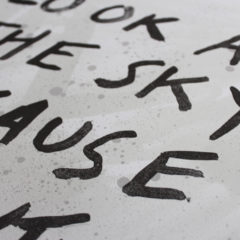 LOOK A
THE SKY
AUSE